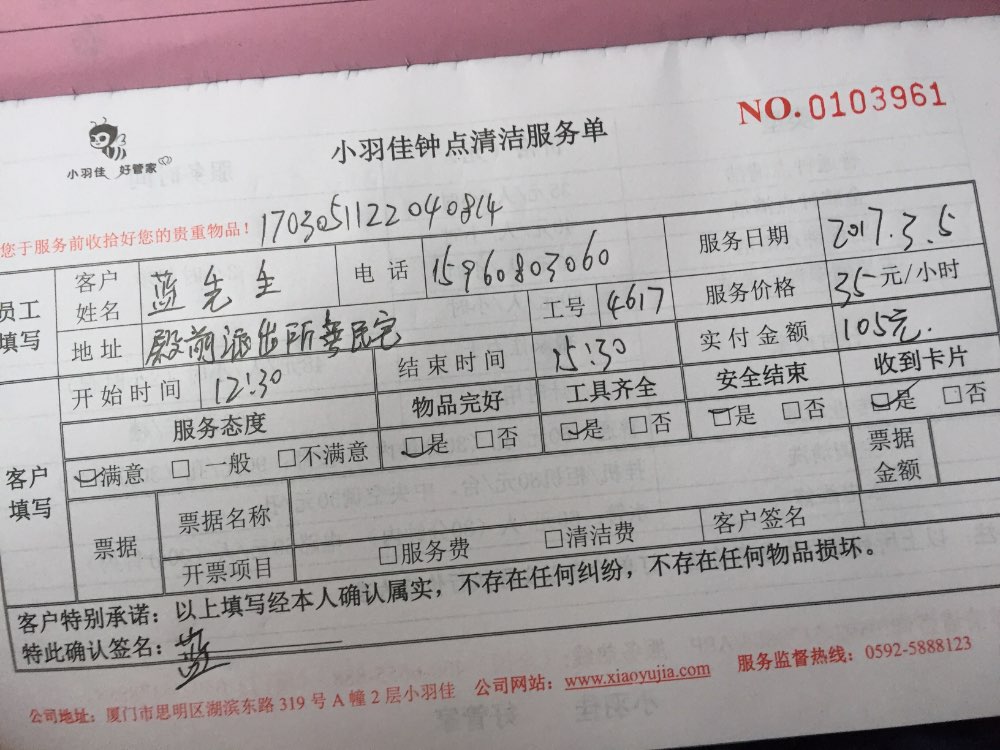 NO.0103961
小羽佳 好管家
小羽佳钟点清洁服务单
您于服务前收拾好您的贵重物品！ 1703051122040814
员工填写 客户姓名 蓝先生 电话 15960803060 服务日期 2017.3.5
地址 殿前派出所 工号 4617 服务价格 35元/小时
开始时间 12:30 结束时间 15:30 实付金额 105元.
客户填写 服务态度 物品完好 工具齐全 安全结束 收到卡片
☑满意 □一般 □不满意 ☑是 □否 ☑是 □否 ☑是 □否 ☑是 □否
票据 票据名称 票据金额
开票项目 □服务费 □清洁费 客户签名
客户特别承诺：以上填写经本人确认属实，不存在任何纠纷，不存在任何物品损坏。
特此确认签名：蓝
公司地址：厦门市思明区湖滨东路319号A幢2层小羽佳 公司网站：www.xiaoyujia.com 服务监督热线：0592-5888123